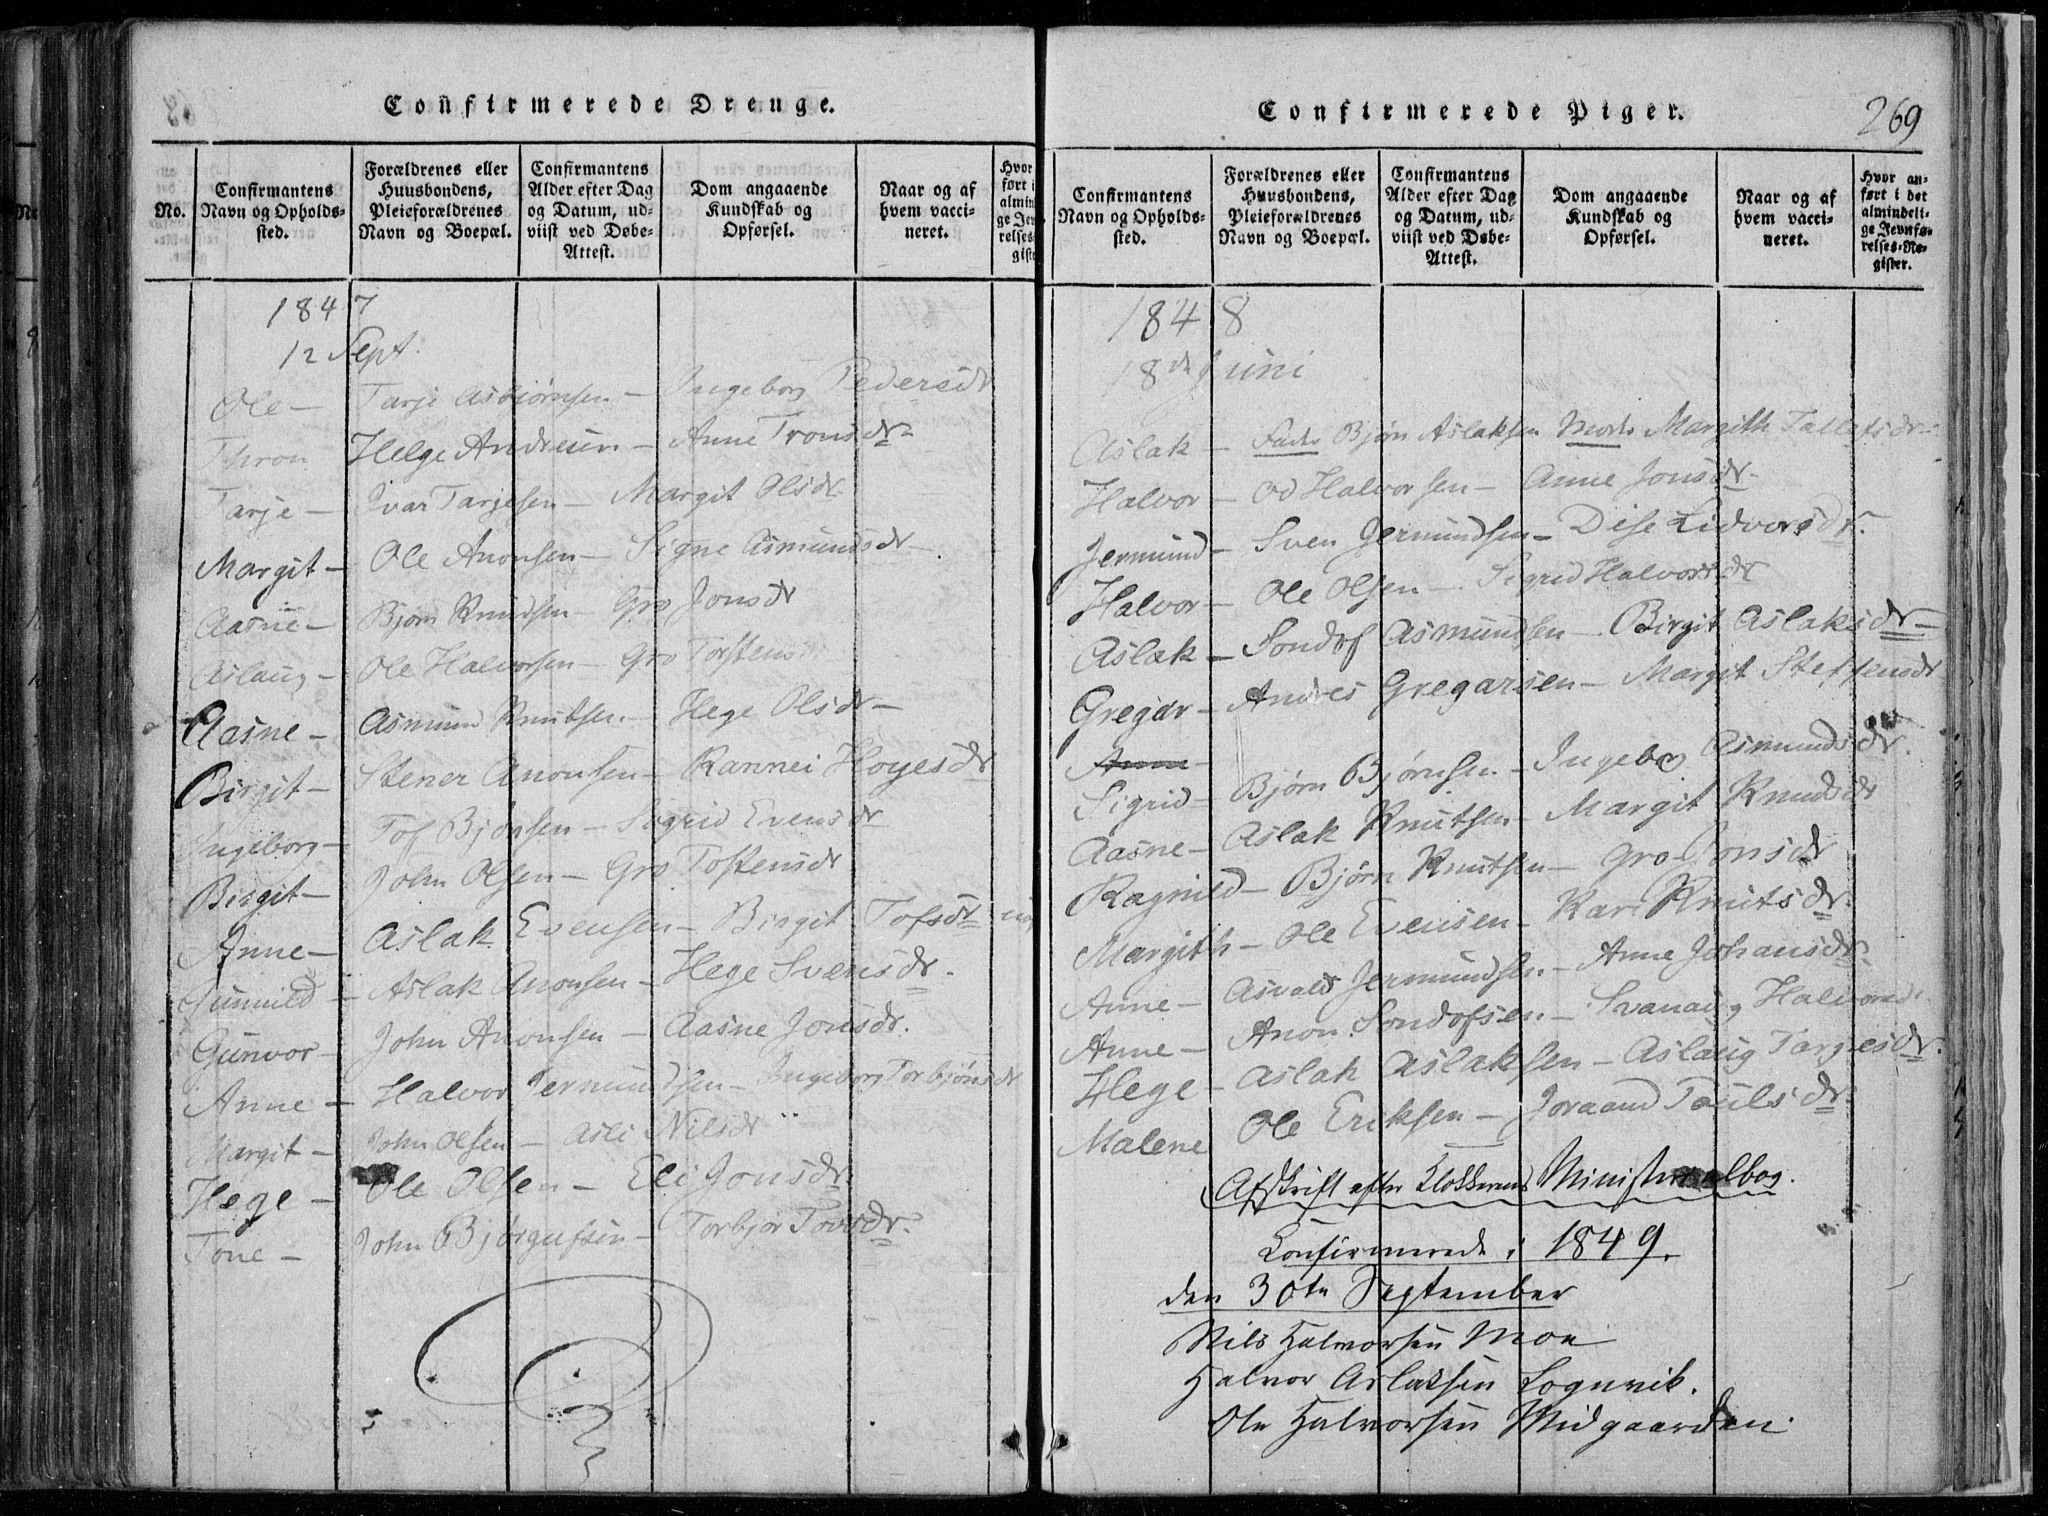 Confirmerede Drenge.
No.
Confirmantens Navn og Opholdssted.
Forældrenes eller Huusbondens, Pleieforældrenes Navn og Boepæl.
Confirmantens Alder efter Dag og Datum, udviist ved Døbe-Attest.
Dom angaaende Kundskab og Opførsel.
Naar og af hvem vaccineret.
1847
12 Sept.
Ole — Tarje Asbiørnsen — Ingeborg Pedersdr
Thron Helge Andresen — Anne Tronsdr
Tarje — Ivar Tarjesen — Margit Olsdr
Margit — Ole Anonsen — Signe Asmundsdr
Aasne — Bjørn Knudsen — Gro Jonsdr
Aslaug — Ole Halvorsen — Gro Torstens
Aasne — Asmund Knutsen — Hege Olsdr
Birgit — Stener Anonsen — Rannei Hoyesdr
Ingeborg — Tof Bjønsen — Sigrid Evensdr
Birgit — John Olsen — Gro Tostensdr
Anne — Aslak Evensen — Birgit Tofsdr
Gunnild — Aslak Anonsen — Hege Svensdr.
Gunvor — John Anonsen — Aasne Jonsdr.
Anne — Halvor Jermundsen — Ingeborg Torbjønsdr
Margit — John Olsen — Asli Nilsdr
Hege — Ole Olsen — Eli Jonsdr
Tone — John Bjørgufsen — Torbjør Tovsdr.
Confirmerede Piger.
269
Confirmantens Navn og Opholdssted.
Forældrenes eller Huusbondens, Pleieforældrenes Navn og Boepæl.
Confirmantens Alder efter Dag og Datum, udviist ved Døbe-Attest.
Dom angaaende Kundskab og Opførsel.
Naar og af hvem vaccineret.
Hvor anført i det almindelige Jevnførelses-Register.
1848
18de Juni
Aslak — Fader Bjørn Aslaksen Moder Margith Tallefsdr
Halvor — Od Halvorsen — Anne Jonsdr
Jermund — Sven Jermundsen — Dise Lidvorsdr.
Halvor — Ole Olsen — Sigrid Halvorsdr
Aslak — Sondof Asmundsen — Birgit Aslaksdr
Gregar — Andres Gregarsen — Margit Steffensdr
Anne
Sigrid — Bjørn Bjørnsen — Ingeborg Asmundsdr.
Aasne — Aslak Knutsen — Margit Knudsdr
Ragnild — Bjørn Knutsen — Gro Jonsdr
Margith — Ole Evensen — Kari Knutsdr.
Anne — Asvald Jermundsen — Anne Johansdr.
Anne — Anon Sondofsen — Svanaug Halvorsd
Hege — Aslak Aslaksen — Aslaug Tarjesdr.
Malene Ole Eriksen — Joraand Paulsdr
Afskrift efter Klokkerens Ministerialbog.
Confirmerede i 1849.
den 30te September
Nils Halvorsen Moe
Halvor Aslaksen Lognvik.
Ole Halvorsen Midgaarden.